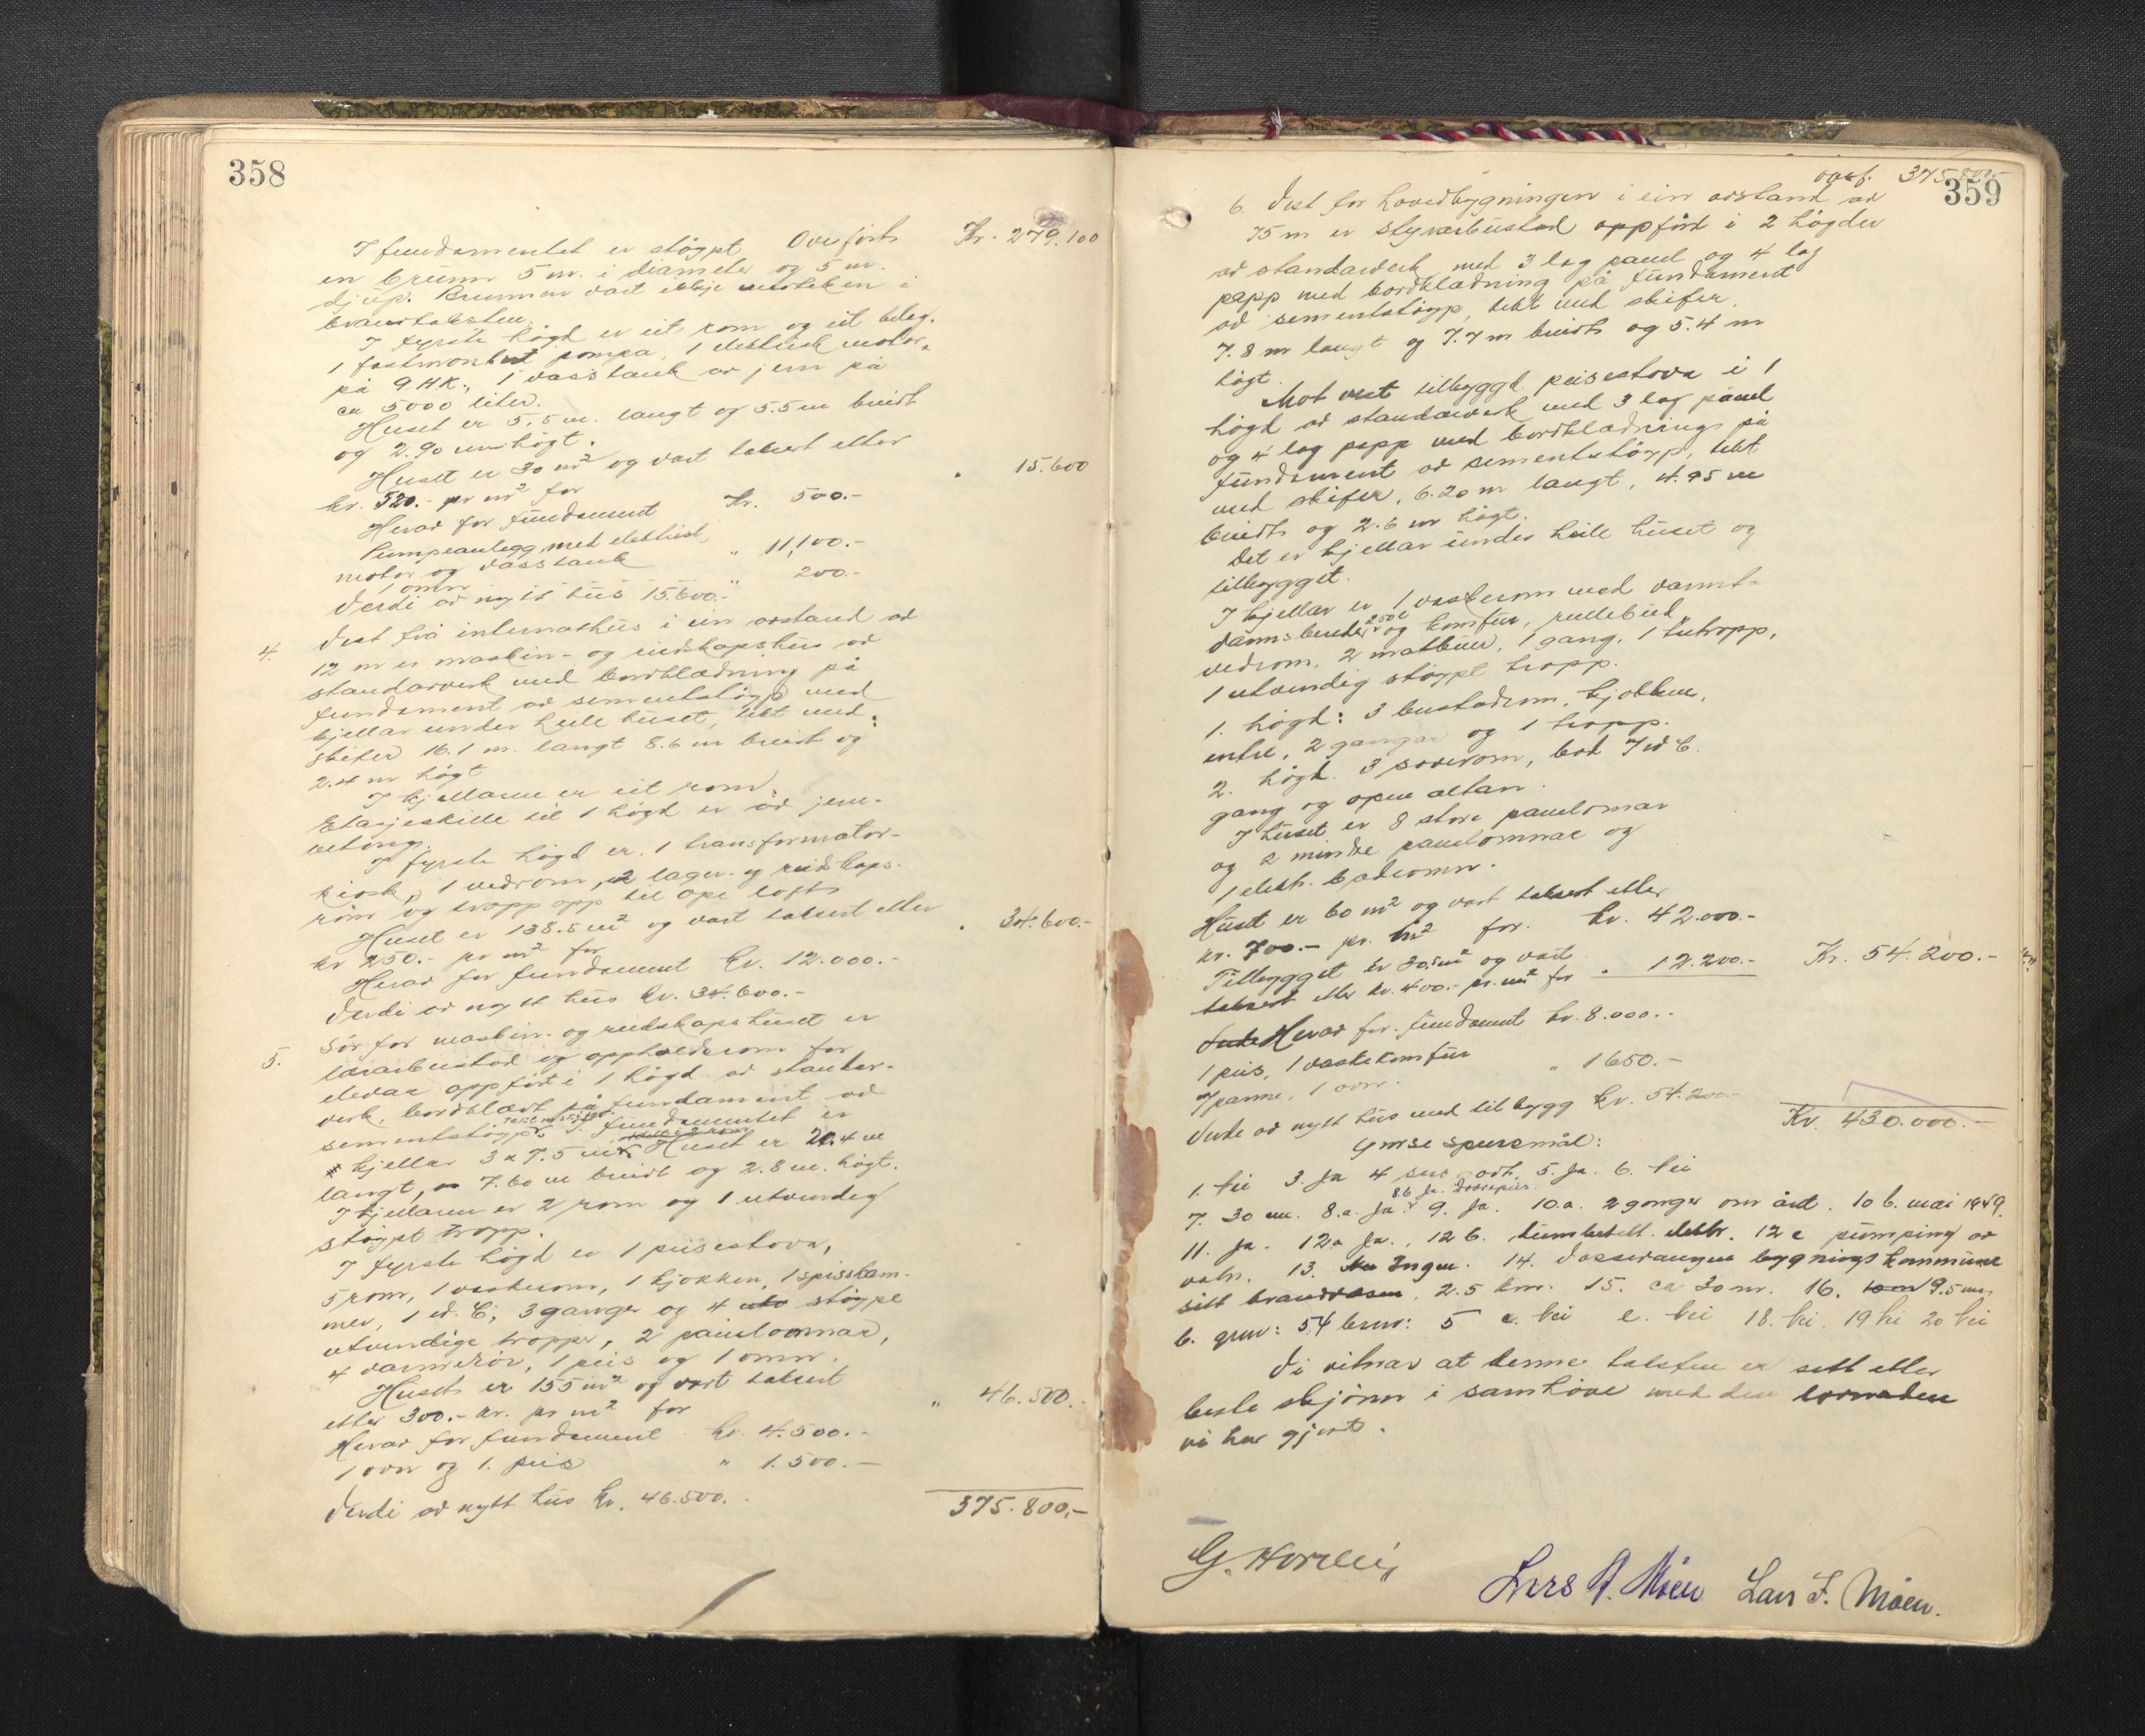 358
I fundamentet er støypt Overført Kr. 279.100
en brunn 5 m. i diameter og 5 m.
djup. Brunnen vart ikkje medteken i
brandtaksten.
I fyrste høgd er eit rom og eit
1 fastmontert pompa, 1 elektrisk motor
på 9 HK., 1 vasstank av jern på
ca 5000 liter.
Huset er 5,5 m. langt og 5.5 m breidt
og 2.90 m høgt.
Huset er 30 m² og vart taksert etter
kr. 520.- pr m² for " 15.600
Herav for fundament Kr. 500.-
Pumpeanlegg med elektrisk
motor og vasstank " 11,100.-
1 omn " 200.-
Verdi av nytt hus 15.600.-
4. Vest frå internathus i ein avstand av
12 m er maskin- og reidskapshus av
standarverk med bordklædning på
fundament av sementstøyp med
kjellar under heile huset, tekt med
skifer 16.1 m. langt 8.6 m breidt og
2.4 m høgt
I kjellaren er eit rom.
Etasjeskille til 1 høgd er av jern-
betong.
I fyrste høgd er 1 transformator-
kiosk, 1 vedrom, 2 lager- og reidskaps-
rom og tropp opp til ope loft
Huset er 138.5 m² og vart taksert etter
kr 250.- pr m² for " 34.600.-
Herav for fundament kr. 12.000.-
Verdi av nytt hus kr. 34.600.-
5. Sør for maskin- og reidskapshuset er
lærarbustad og oppholdsrom for
elevar oppført i 1 høgd av standar-
verk, bordklædt på fundament av
sementstøyp, tekt m. skifer. I fundamentet er
kjellar 3 x 7.5 m. Huset er 20.4 m
langt, 7.60 m breidt og 2.8 m. høgt.
I kjellaren er 2 rom og 1 utvendig
støypt tropp.
I fyrste høgd er 1 peisestova,
5 rom, 1 vaskerom, 1 kjøkken, 1 spiskam-
mer, 1 v. C; 3 ganger og 4 støypte
utvendige tropper, 2 panelomnar,
4 varmerør, 1 peis og 1 omn.
Huset er 155 m² og vart taksert
etter 300.- kr. pr m² for " 46.500.-
Herav for fundament kr. 4.500.-
1 ovn og 1. peis " 1.500.-
Verdi av nytt hus kr. 46.500.-
375.800,-
359
overf. 375.800.-
6. Vest for hovedbygningen i ein avstand av
75 m er styrarbustad oppført i 2 høgder
av standarverk med 3 lag panel og 4 lag
papp med bordklædning på fundament
av sementstøyp, tekt med skifer.
7.8 m langt og 7.7 m breidt og 5.4 m
høgt.
Mot vest tilbyggd peisestova i 1
høgd av standarverk med 3 lag panel
og 4 lag papp med bordklædning på
fundament av sementstøyp, tekt
med skifer, 6.20 m langt, 4.95 m
breidt og 2.6 m høgt.
Det er kjellar under heile huset og
tilbygget.
I kjellar er 1 vaskerom med varmt-
vannsbereder 250 l og komfur, rullebud,
vedrom, 2 matbuer, 1 gang, 1 tretropp,
1 utvendig støypt tropp.
1. høgd: 3 bustadrom, kjøkken,
entre, 2 gangar og 1 tropp.
2. høgd. 3 soverom, bad, 1 v C.
gang og open altan.
I huset er 8 store panelomnar
og 2 mindre panelomnar og
1 elektr. badeomn.
Huset er 60 m² og vart taksert etter
kr. 700.- pr. m² for. kr. 42.000.-
Tilbygget er 30,5 m² og vart
taksert etter kr. 400.- pr. m² for " 12.200.- Kr. 54.200.-
Herav for fundament kr. 8.000..
1 peis, 1 vaskekomfur
1 panne, 1 ovn. " 1650.-
Verde av nytt hus med tilbygg kr. 54.200.-
Kr. 430.000.-
Ymse spursmål:
1. Nei 3. Ja 4 sue. odt. 5. Ja. 6. Nei
7. 30 m. 8.a. Ja. 8 b Ja. 9. Ja. 10.a. 2 gonger om året. 10 b. mai 1949.
11. Ja. 12a Ja., 12 b. tilfredstill. elektr. 12 c pumping av
vatn. 13. Ingen. 14. bygnings kommune
sitt brandvesen. 2.5 km. 15. ca 30 m. 16. 9.5 m
b. grunn: 54 brnr: 5 c. Nei e. Nei 18. Nei. 19 Nei 20 Nei
Vi vitnar at denne taksten er sett etter
beste skjønn i samhøve med den
vi har gjort.
Lars A. Moen Lars F. Moen.